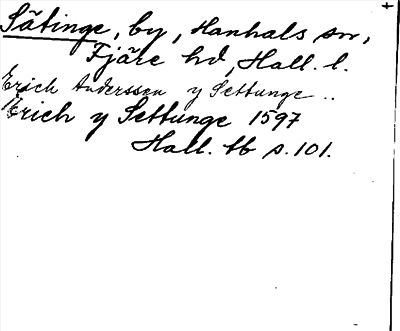 Sätinge, by, Hanhals sn,
Fjäre hd, Hall. l.
Erich Anderssen y Settunge ..
Erich y Settunge 1597
Hall. tb s. 101.